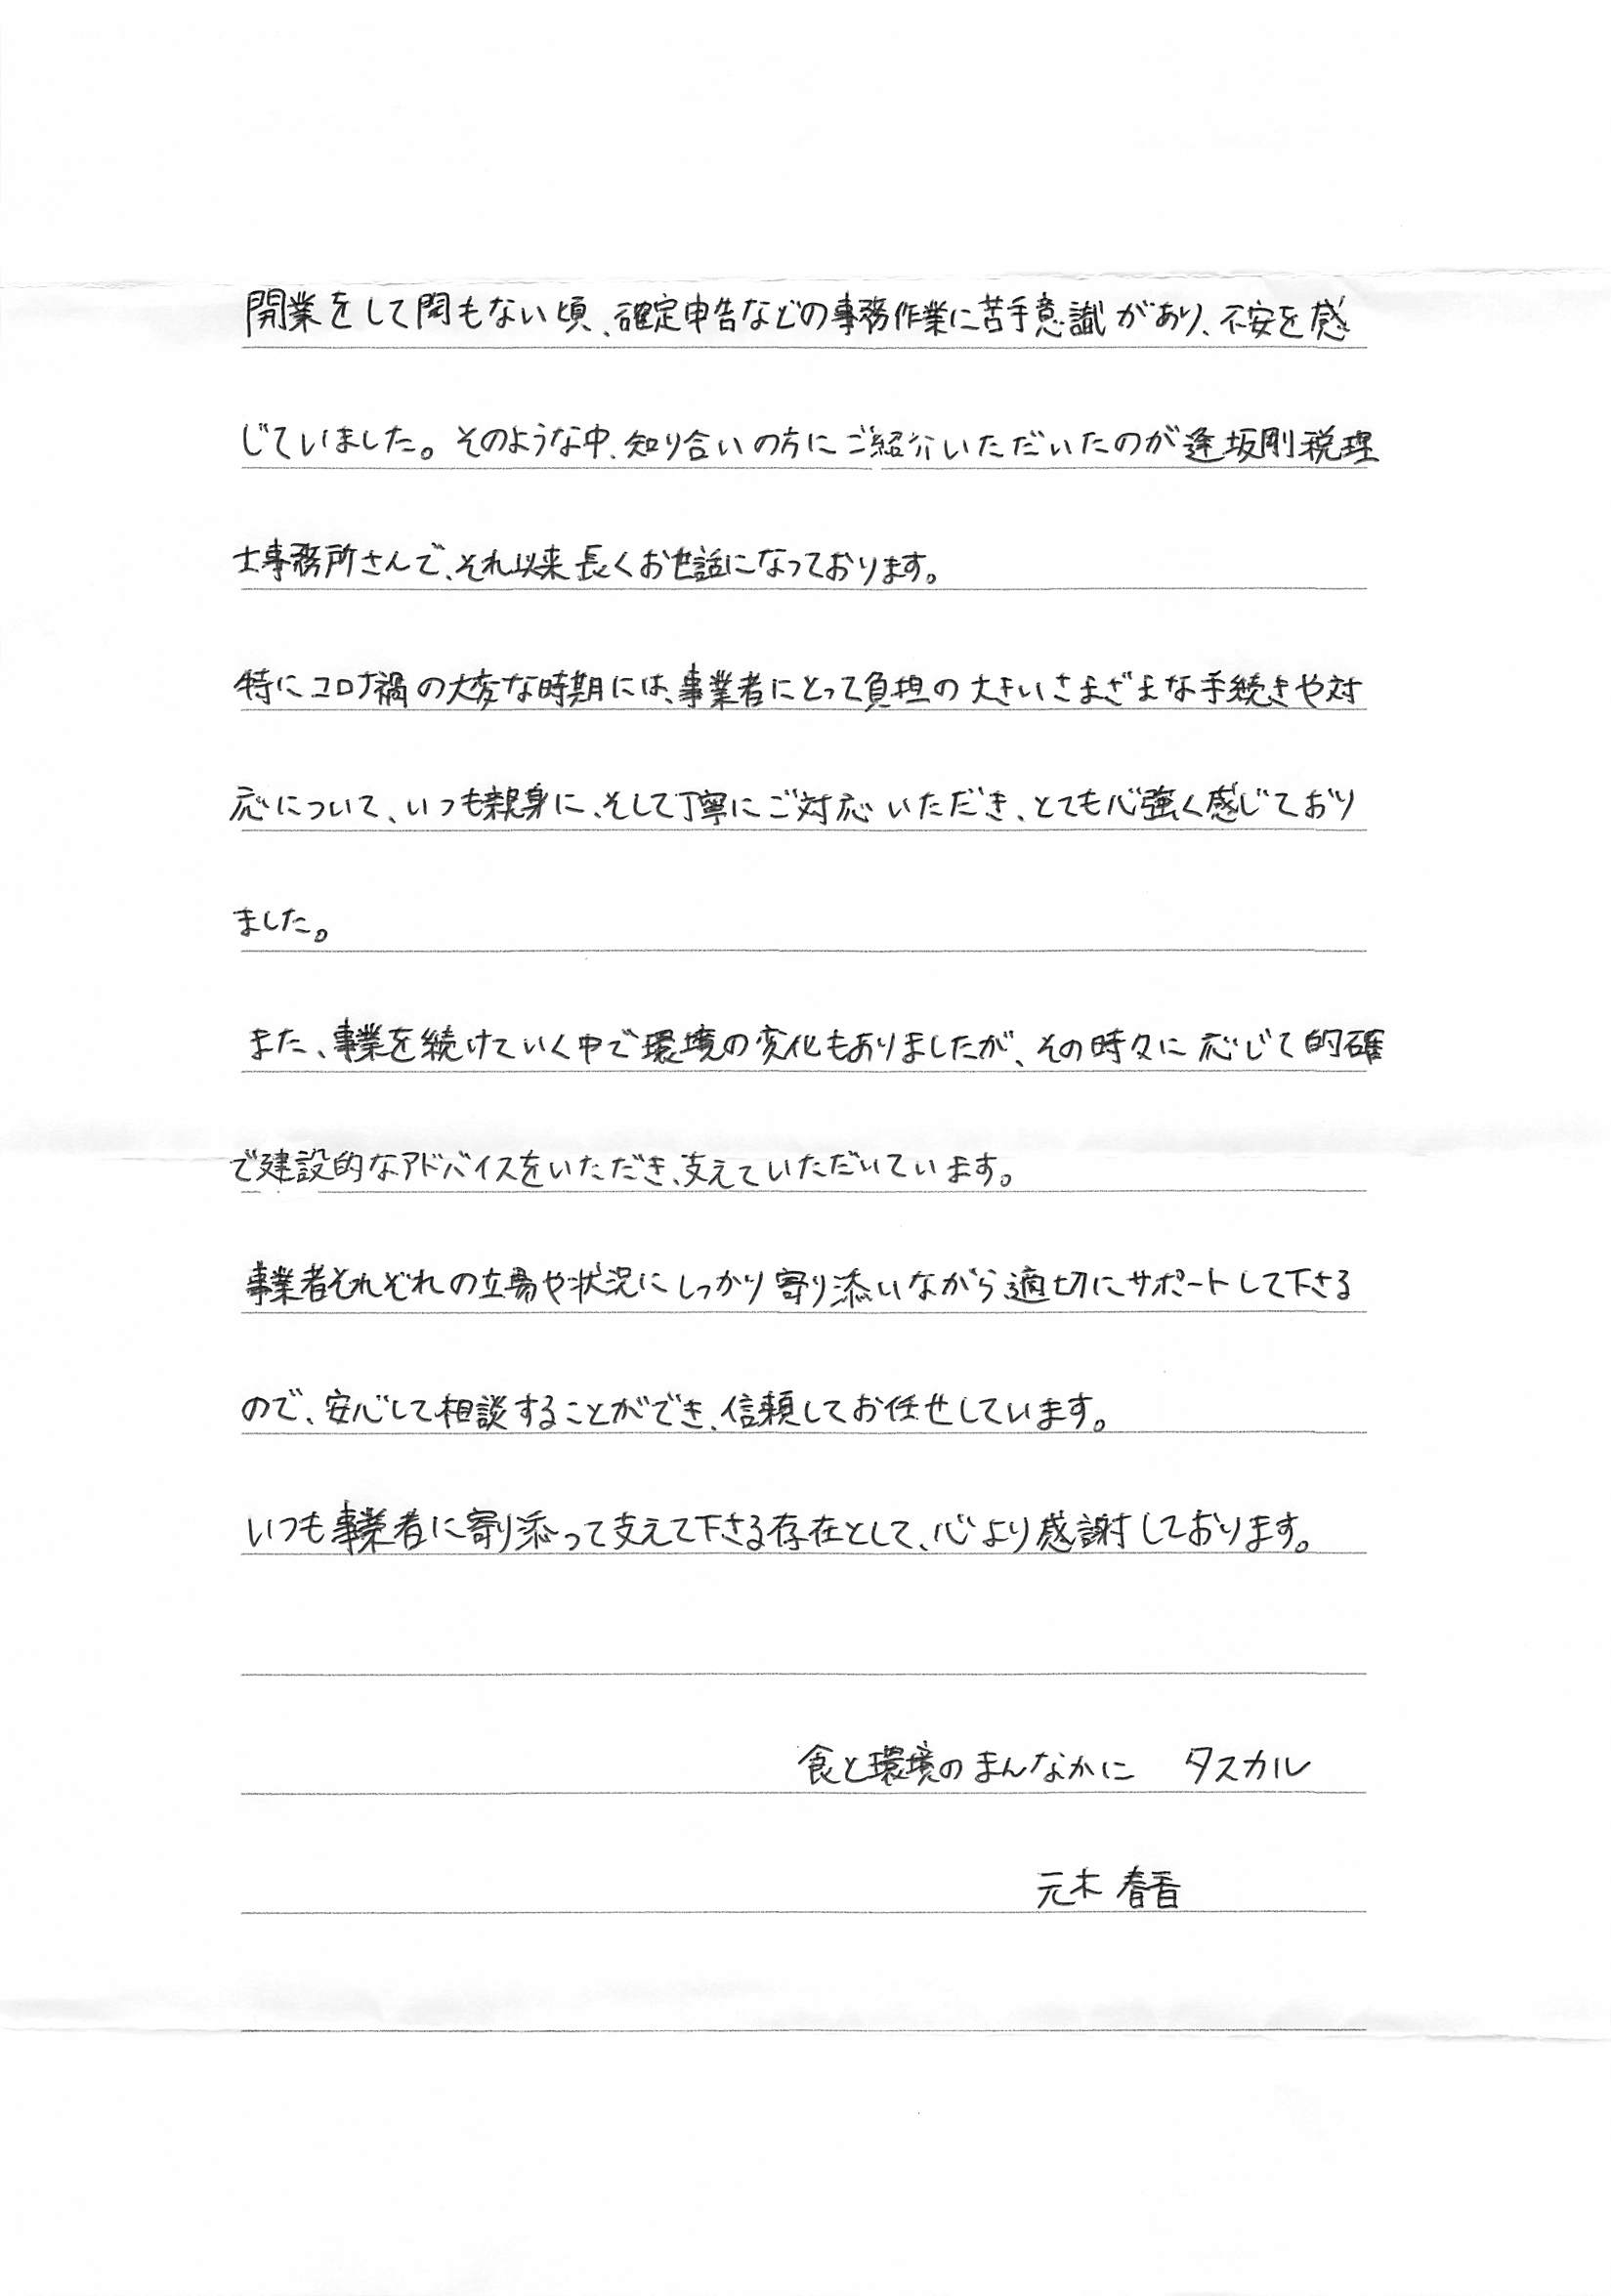 開業をして間もない頃、確定申告などの事務作業に苦手意識があり、不安を感
じていました。そのような中、知り合いの方にご紹介いただいたのが逢坂剛税理
士事務所さんで、それ以来長くお世話になっております。
特にコロナ禍の大変な時期には、事業者にとって負担の大きいさまざまな手続きや対
応について、いつも親身に、そして丁寧にご対応いただき、とても心強く感じており
ました。
また、事業を続けていく中で環境の変化もありましたが、その時々に応じて的確
で建設的なアドバイスをいただき、支えていただいています。
事業者それぞれの立場や状況にしっかり寄り添いながら適切にサポートして下さる
ので、安心して相談することができ、信頼してお任せしています。
いつも事業者に寄り添って支えて下さる存在として、心より感謝しております。
食と環境のまんなかに タスカル
元木 春香